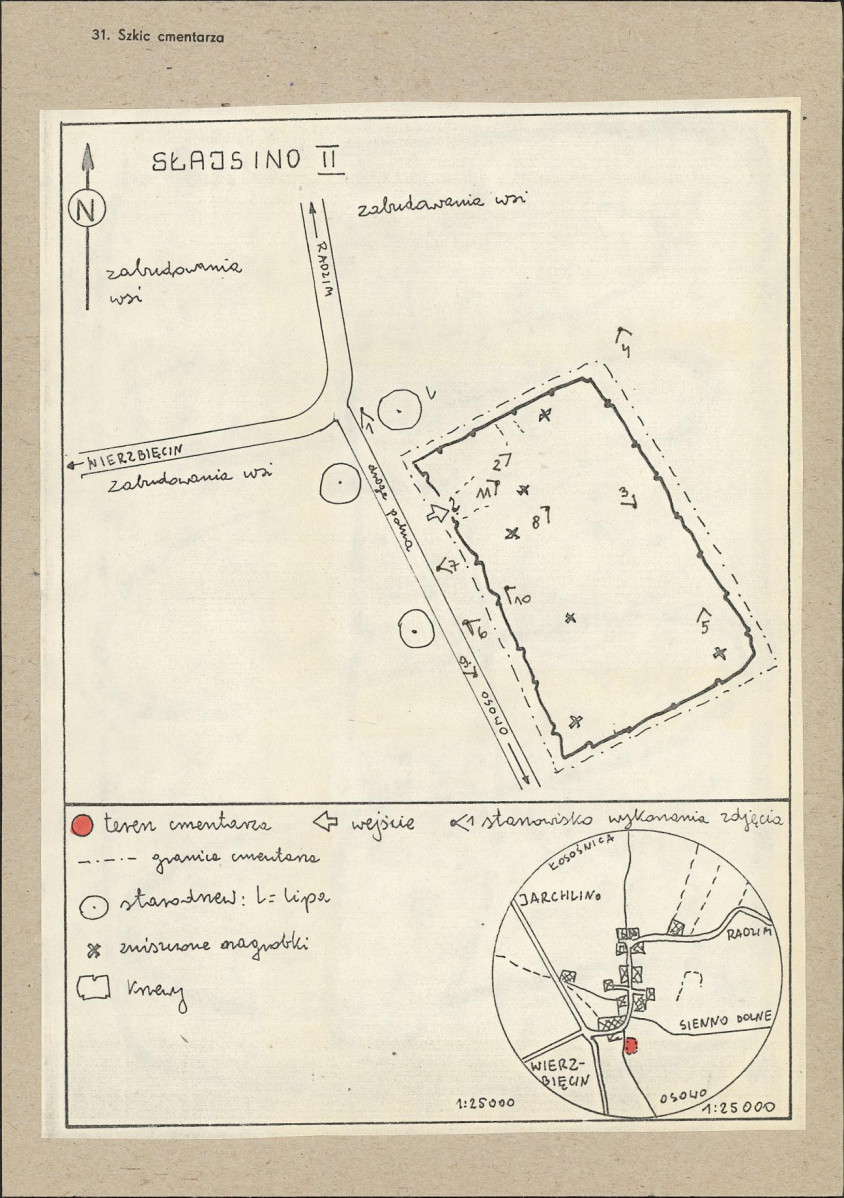 31. Szkic cmentarza
SŁAJSINO II
N
zabudowania wsi
zabudowania
wsi
RADZIM
4
L
1
WIERZBIĘCIN
zabudowania wsi
droga polna
2
11
3
8
7
10
6
5
9
OSOWO
teren cmentarza
wejście
1 stanowisko wykonania zdjęcia
granica cmentarza
starodrzew: L = lipa
zniszczone nagrobki
Krzewy
ŁOSOŚNICA
JARCHLINO
RADZIM
SIENNO DOLNE
WIERZ-
BIĘCIN
OSOWO
1:25000
1:25000